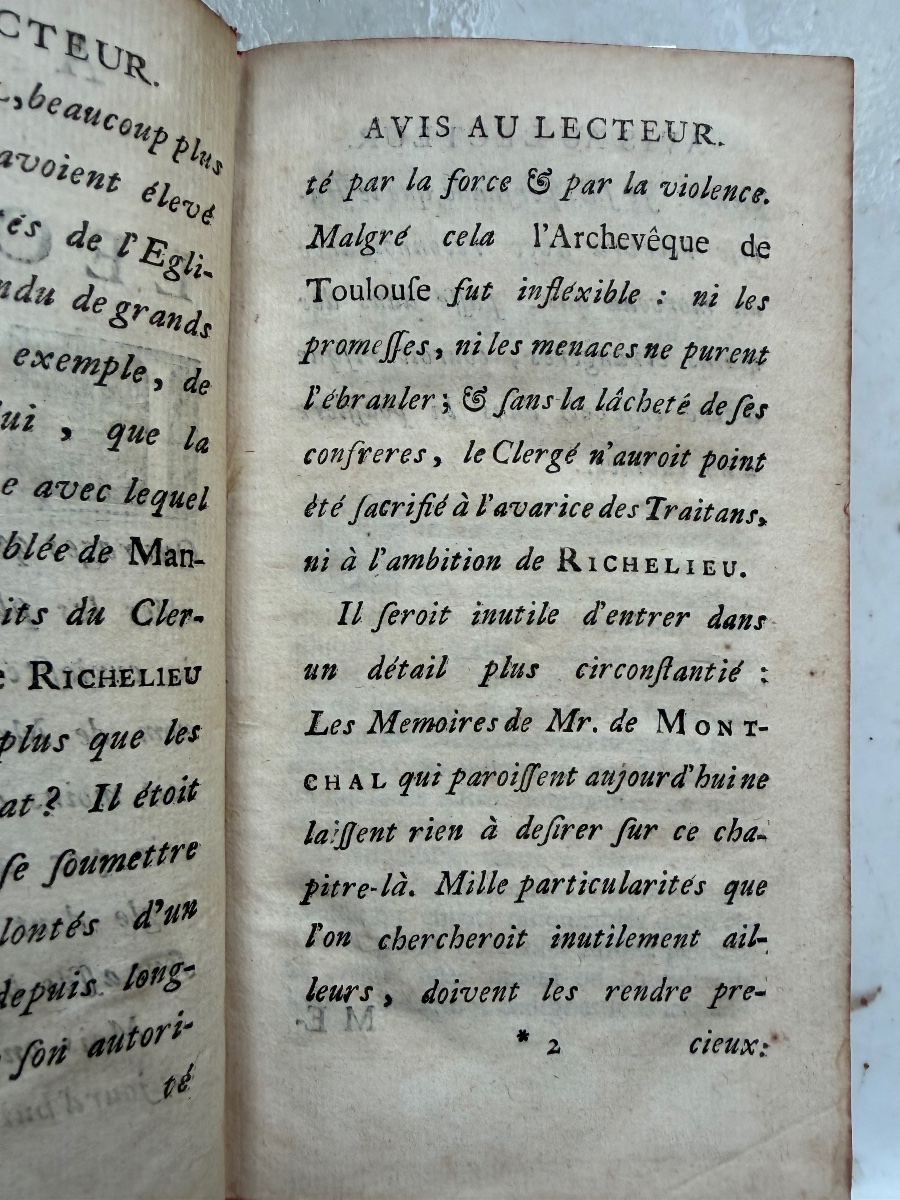 CTEUR.
beaucoup plus
avoient élevé
de l'Egli-
de grands
exemple, de
, que la
e avec lequel
blée de Man-
its du Cler-
e RICHELIEU
plus que les
at ? Il étoit
ſe ſoumettre
lontés d'un
depuis long-
ſon autori-
té
AVIS AU LECTEUR.
té par la force & par la violence.
Malgré cela l'Archevêque de
Toulouſe fut infléxible : ni les
promeſſes, ni les menaces ne purent
l'ébranler ; & ſans la lâcheté de ſes
confreres, le Clergé n'auroit point
èté ſacrifié à l'avarice des Traitans,
ni à l'ambition de RICHELIEU.
Il ſeroit inutile d'entrer dans
un détail plus circonſtantié :
Les Memoires de Mr. de MONT-
CHAL qui paroiſſent aujourd'hui ne
laiſſent rien à deſirer ſur ce cha-
pitre-là. Mille particularités que
l'on chercheroit inutilement ail-
leurs, doivent les rendre pre-
* 2 cieux: